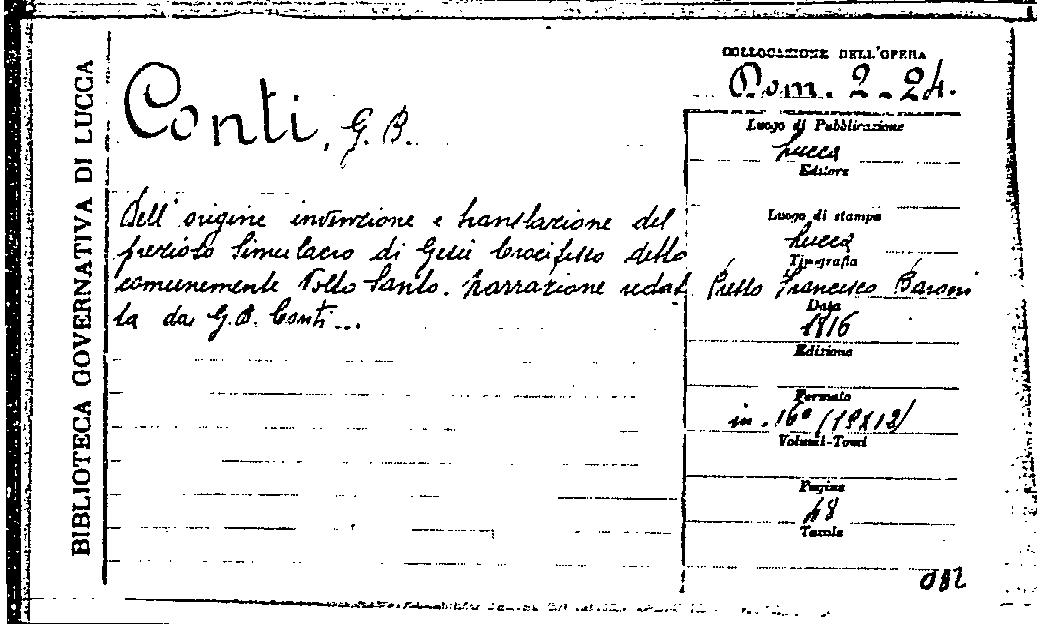 BIBLIOTECA GOVERNATIVA DI LUCCA
Conti, G. B.
Dell' origine invenzione e translazione del
prezioso Simulacro di Gesù Crocifisso detto
comunemente Volto Santo. Narrazione redat
ta da G.B. Conti...
COLLOCAZIONE DELL'OPERA
Dom. 2-24.
Luogo di Pubblicazione
Lucca
Editore
Luogo di stampa
Lucca
Tipografia
Presso Francesco Baroni
Data
1816
Edizione
Formato
in. 16° (19x12)
Volumi-Tomi
Pagine
48
Tavole
082